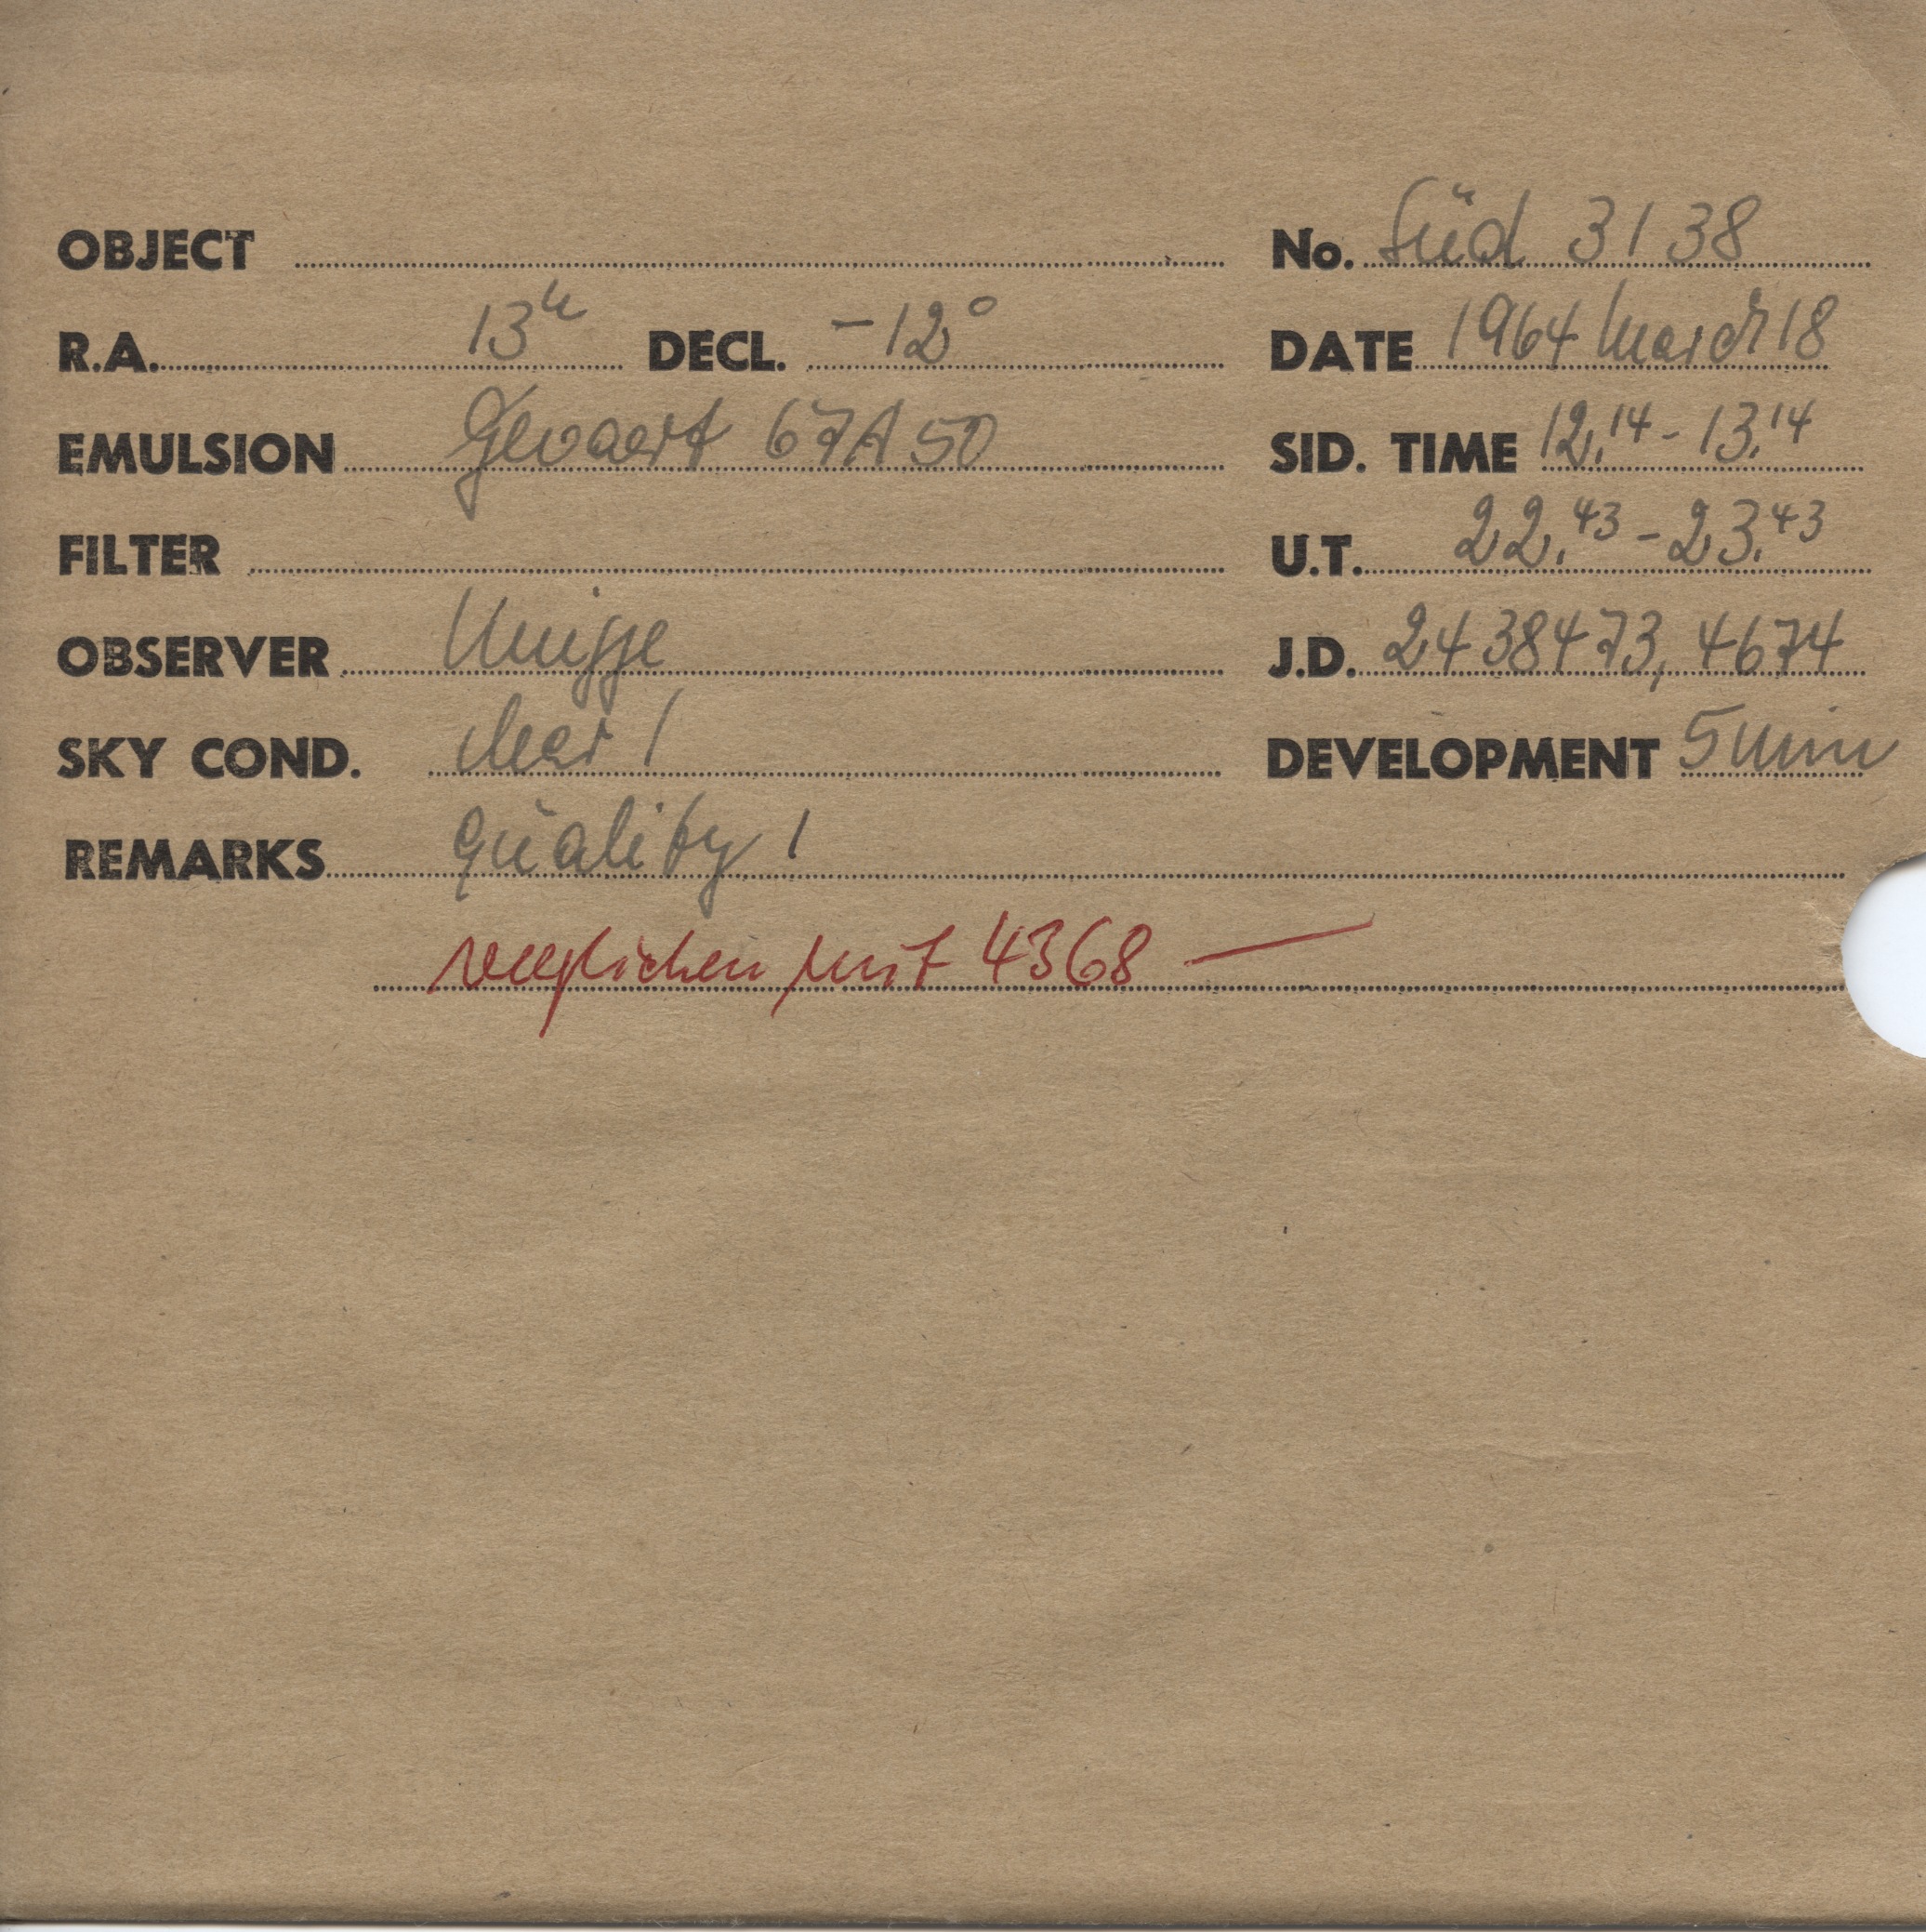 OBJECT No. Süd 3138
R.A. 13h DECL. -12° DATE 1964 March 18
EMULSION Gevaert 67A50 SID. TIME 12,14 - 13,14
FILTER U.T. 22,43 - 23,43
OBSERVER J.D. 2438473,4674
SKY COND. clear 1 DEVELOPMENT 5 min
REMARKS quality 1
verglichen mit 4368 —